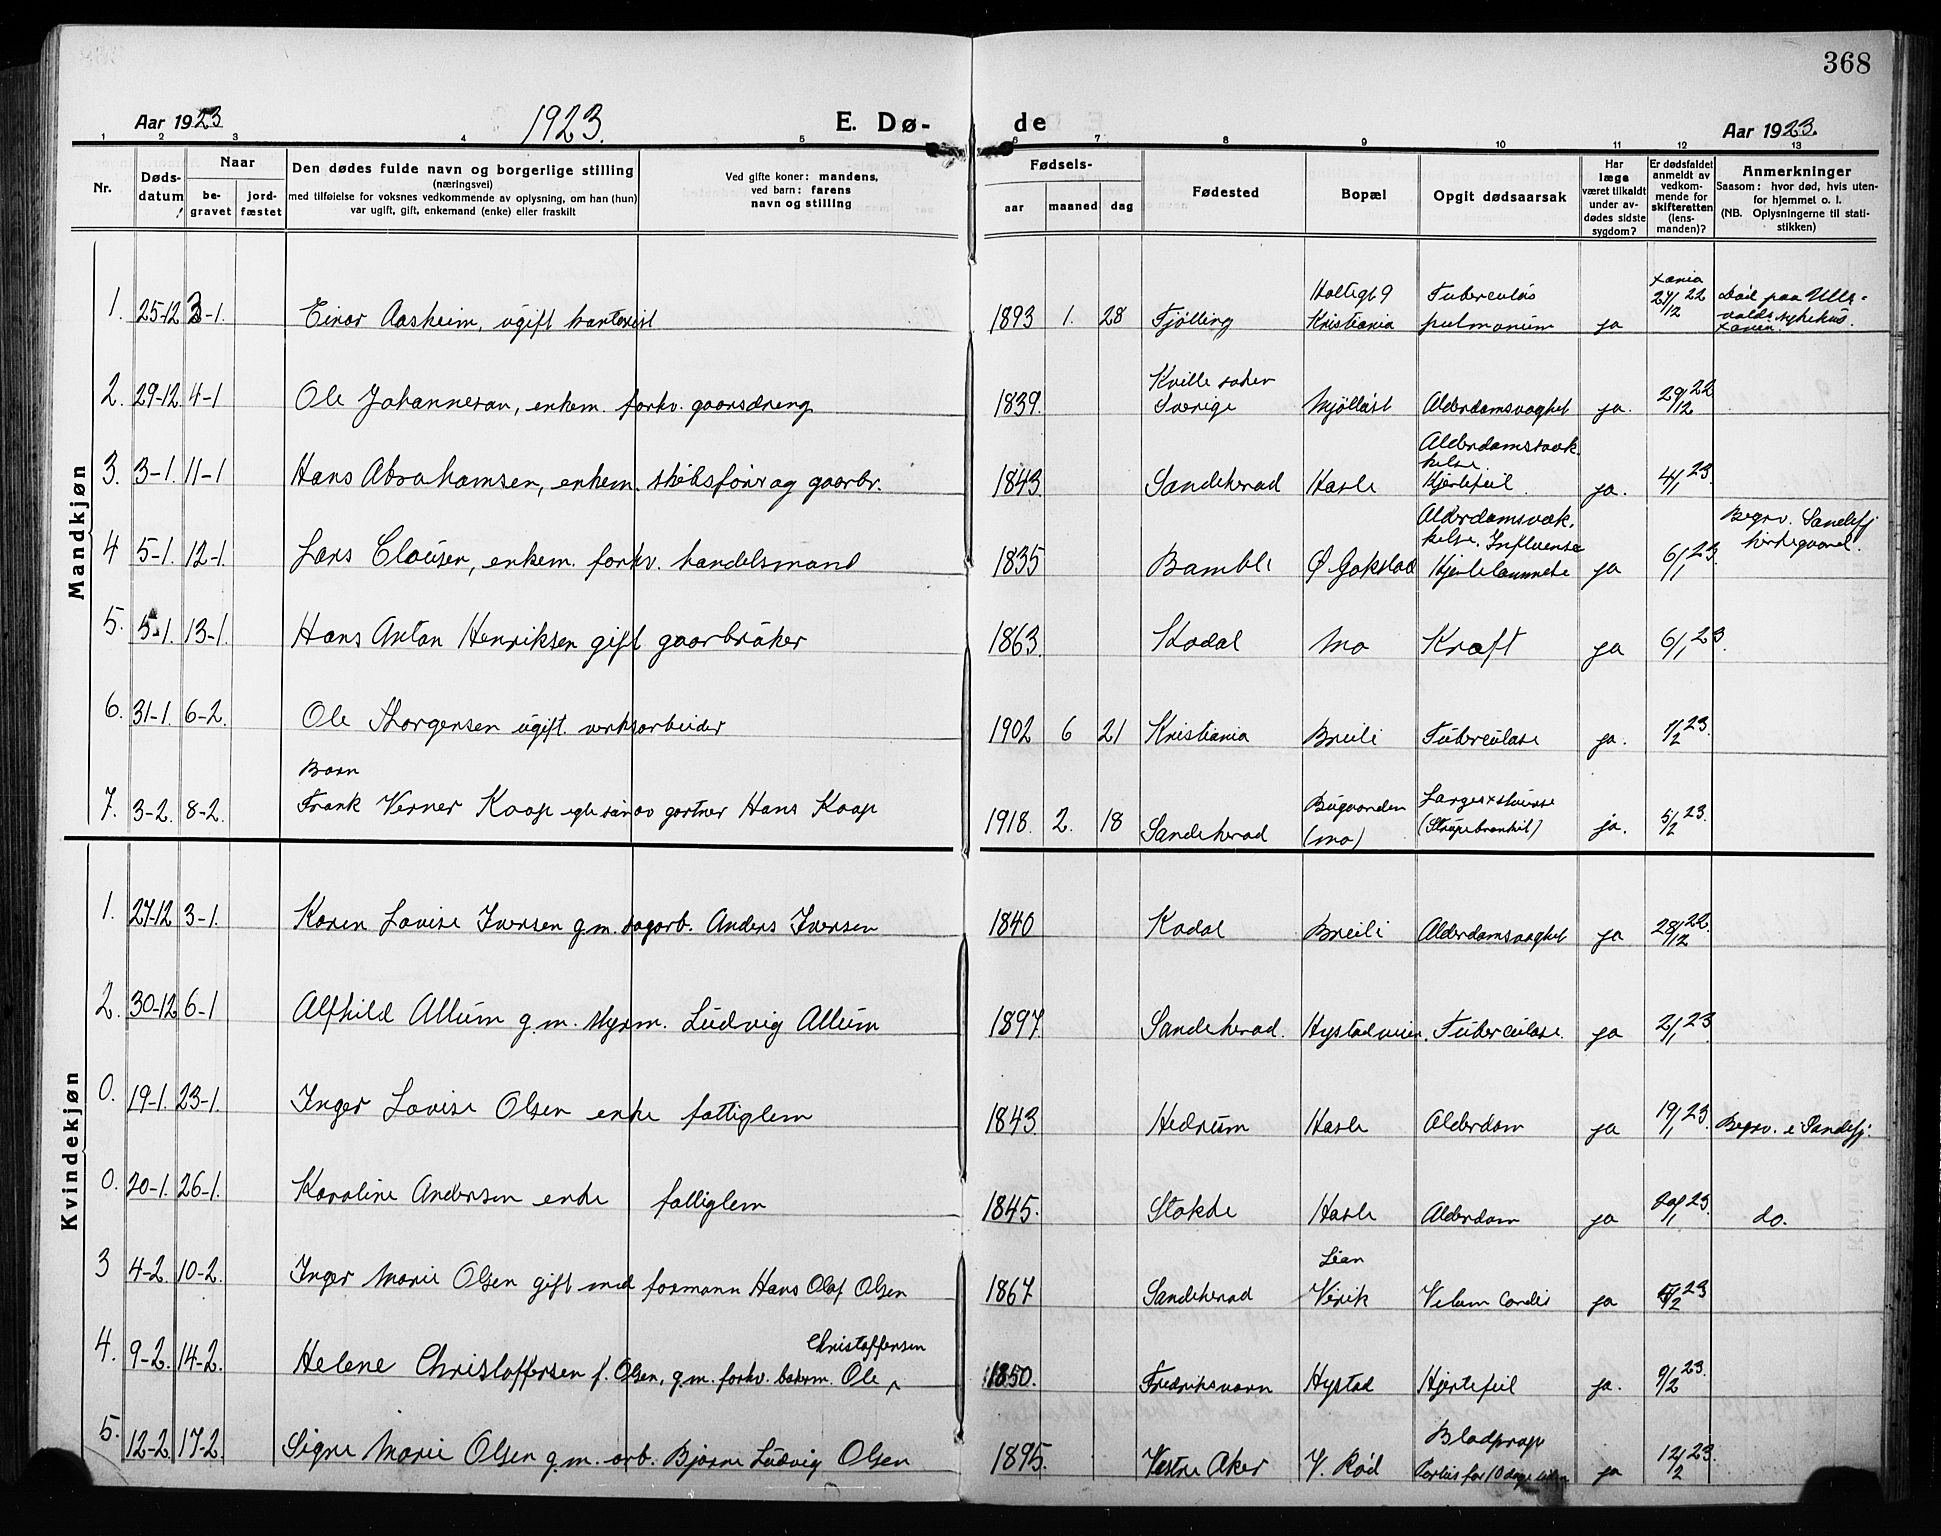 368
Aar 1923
1923.
E. Dø-
de
Aar 1923.
1 2 3 4 5 6 7 8 9 10 11 12 13
Nr.
Døds-
datum
Naar
be-
gravet
jord-
fæstet
Den dødes fulde navn og borgerlige stilling
(næringsvei)
med tilføielse for voksnes vedkommende av oplysning, om han (hun)
var ugift, gift, enkemand (enke) eller fraskilt
Ved gifte koner: mandens,
ved barn: farens
navn og stilling
Fødsels-
aar
maaned
dag
Fødested
Bopæl
Opgit dødsaarsak
Har
læge
været tilkaldt
under av-
dødes sidste
sygdom?
Er dødsfaldet
anmeldt av
vedkom-
mende for
skifteretten
(lens-
manden)?
Anmerkninger
Saasom: hvor død, hvis uten-
for hjemmet o. l.
(NB. Oplysningerne til stati-
stikken)
Mandkjøn
1. 25-12 3-1. Einar Aasheim, ugift kontorist 1893 1. 28 Fjølling Holtegt 9 Kristiania Tuberculos pulmonum ja xania 27/12 22 Død paa Ulle-
valds sykehus
xania.
2. 29-12. 4-1 Ole Johannesen, enkem. forhv. gaarsdreng 1839. Kville sohen Sverige Mjøllöst Alderdomsvaghet ja. 29/12 22
3. 3-1. 11-1 Hans Abrahamsen, enkem. skibsfører og gaarbr. 1843. Sandeherad Hasle Alderdomssvæk-
kelse.
Hjertefeil ja. 4/1 23.
4 5-1. 12-1. Lars Clausen, enkem. forhv. handelsmand 1835 Bamble Ø Gokstad Alderdomsvæk.
kelse. Influensa
Hjertelammelse ja 6/1 23. Begrv. Sandefj
kirkegaard.
5. 5-1. 13-1. Hans Anton Henriksen gift gaarbruker 1863. Kodal Mo Kræft ja 6/1 23.
6. 31-1. 6-2. Ole Thorgersen ugift. verksarbeider 1902 6 21 Kristiania Breili Tuberculose ja. 1/2 23.
Barn
7. 3-2. 8-2. Frank Verner Kaap egte søn av gartner Hans Kaap 1918. 2. 18 Sandeherad Bugaarden (Mo) (Strupebronkit) ja. 5/2 23.
Kvindekjøn
1. 27-12 3-1. Karen Lovise Iversen g.m. sagarb. Anders Iversen 1840 Kodal Breili Alderdomsvaghet ja 28/12 22.
2. 30-12 6-1 Alfhild Allum g.m. styrm. Ludvig Allum 1897. Sandeherad. Hystadveien. Tuberculose. ja 2/1 23.
0. 19-1. 23-1. Inger Lovise Olsen enke fattiglem 1843. Hedrum Hasle Alderdom ja 19/1 23. Begrv. i Sandefj.
0. 20-1. 26-1. Karoline Andersen enke fattiglem 1845. Stokke Hasle Alderdom ja 20/1 23. do.
3 4-2. 10-2. Inger Marie Olsen gift med formann Hans Olaf Olsen 1867 Sandeherad Lian
Virik Vitium Cordis ja 5/2 23
4. 9-2. 14-2. Helene Christoffersen f. Olsen, g.m. forhv. bakerm. Ole Christoffersen 1850. Fredriksværn Hystad Hjertefeil ja. 9/2 23.
5. 12-2. 17-2. Signe Marie Olsen g.m. arb. Bjarne Ludvig Olsen 1895. Vestre Aker V. Rød Blodprop
for 10 dage siden ja 12/2 23.